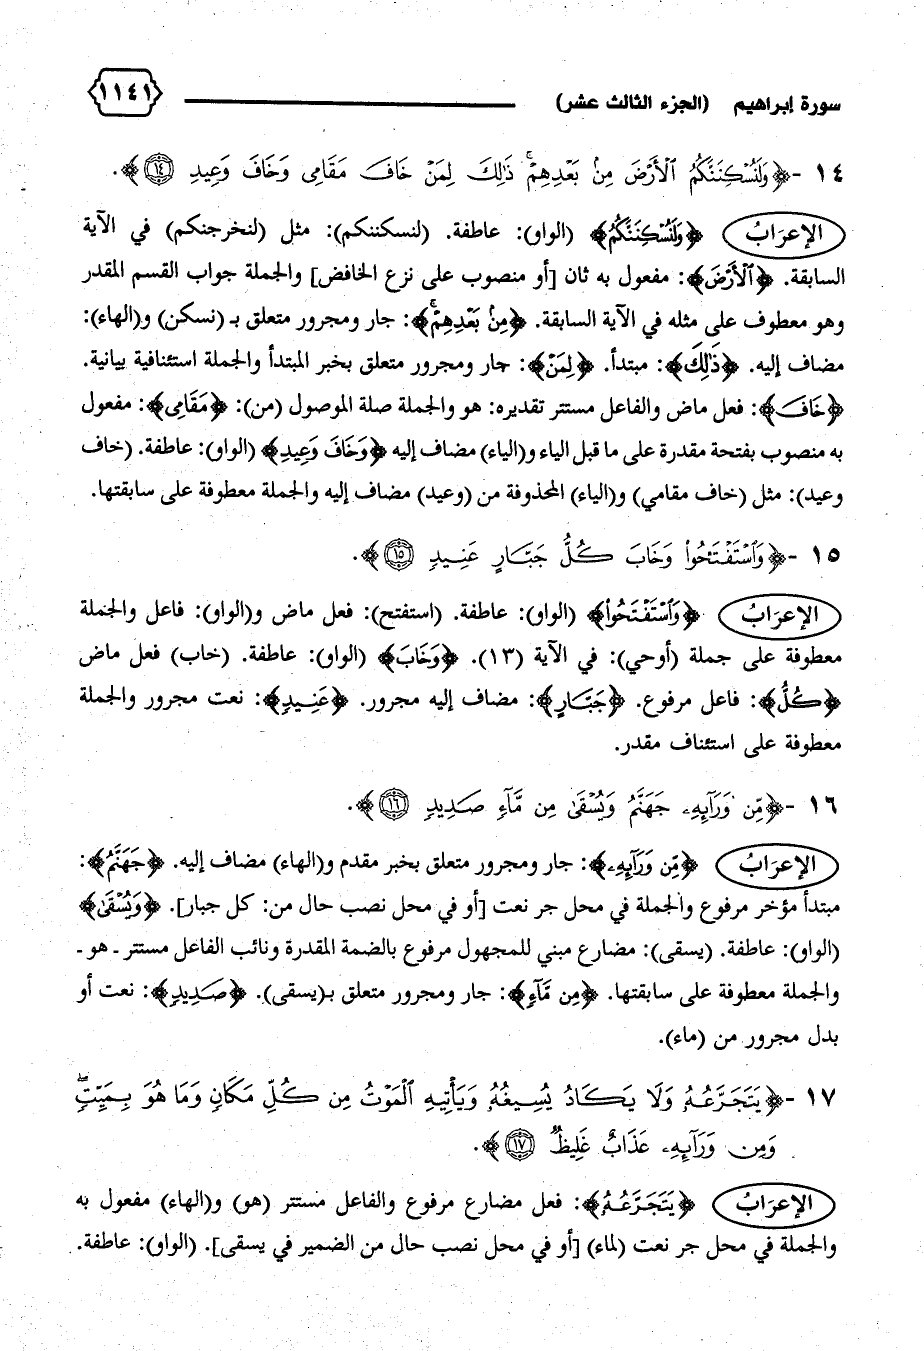 سورة إبراهيم (الجزء الثالث عشر) ١١٤١
١٤ - ﴿وَلَنُسْكِنَنَّكُمُ ٱلْأَرْضَ مِنۢ بَعْدِهِمْ ۚ ذَٰلِكَ لِمَنْ خَافَ مَقَامِى وَخَافَ وَعِيدِ ١٤﴾.
الإعرَابُ ﴿وَلَنُسْكِنَنَّكُمُ﴾ (الواو): عاطفة. (لنسكننكم): مثل (لنخرجنكم) في الآية
السابقة. ﴿ٱلْأَرْضَ﴾: مفعول به ثان [أو منصوب على نزع الخافض] والجملة جواب القسم المقدر
وهو معطوف على مثله في الآية السابقة. ﴿مِنۢ بَعْدِهِمْ ۚ﴾: جار ومجرور متعلق بـ (نسكن) و(الهاء):
مضاف إليه. ﴿ذَٰلِكَ﴾: مبتدأ. ﴿لِمَنْ﴾: جار ومجرور متعلق بخبر المبتدأ والجملة استئنافية بيانية.
﴿خَافَ﴾: فعل ماض والفاعل مستتر تقديره: هو والجملة صلة الموصول (من): ﴿مَقَامِى﴾: مفعول
به منصوب بفتحة مقدرة على ما قبل الياء و(الياء) مضاف إليه ﴿وَخَافَ وَعِيدِ﴾ (الواو): عاطفة. (خاف
وعيد): مثل (خاف مقامي) و(الياء) المحذوفة من (وعيد) مضاف إليه والجملة معطوفة على سابقتها.
١٥ - ﴿وَٱسْتَفْتَحُوا۟ وَخَابَ كُلُّ جَبَّارٍ عَنِيدٍ ١٥﴾.
الإعرَابُ ﴿وَٱسْتَفْتَحُوا۟﴾ (الواو): عاطفة. (استفتح): فعل ماض و(الواو): فاعل والجملة
معطوفة على جملة (أوحي): في الآية (١٣). ﴿وَخَابَ﴾ (الواو): عاطفة. (خاب) فعل ماض
﴿كُلُّ﴾: فاعل مرفوع. ﴿جَبَّارٍ﴾: مضاف إليه مجرور. ﴿عَنِيدٍ﴾: نعت مجرور والجملة
معطوفة على استئناف مقدر.
١٦ - ﴿مِّن وَرَآئِهِۦ جَهَنَّمُ وَيُسْقَىٰ مِن مَّآءٍ صَدِيدٍ ١٦﴾.
الإعرَابُ ﴿مِّن وَرَآئِهِۦ﴾: جار ومجرور متعلق بخبر مقدم و(الهاء) مضاف إليه. ﴿جَهَنَّمُ﴾:
مبتدأ مؤخر مرفوع والجملة في محل جر نعت [أو في محل نصب حال من: كل جبار]. ﴿وَيُسْقَىٰ﴾
(الواو): عاطفة. (يسقى): مضارع مبني للمجهول مرفوع بالضمة المقدرة ونائب الفاعل مستتر ـ هو ـ
والجملة معطوفة على سابقتها. ﴿مِن مَّآءٍ﴾: جار ومجرور متعلق بـ(يسقى). ﴿صَدِيدٍ﴾: نعت أو
بدل مجرور من (ماء).
١٧ - ﴿يَتَجَرَّعُهُۥ وَلَا يَكَادُ يُسِيغُهُۥ وَيَأْتِيهِ ٱلْمَوْتُ مِن كُلِّ مَكَانٍ وَمَا هُوَ بِمَيِّتٍ ۖ
وَمِن وَرَآئِهِۦ عَذَابٌ غَلِيظٌ ١٧﴾.
الإعرَابُ ﴿يَتَجَرَّعُهُۥ﴾: فعل مضارع مرفوع والفاعل مستتر (هو) و(الهاء) مفعول به
والجملة في محل جر نعت (لماء) [أو في محل نصب حال من الضمير في يسقى]. (الواو): عاطفة.